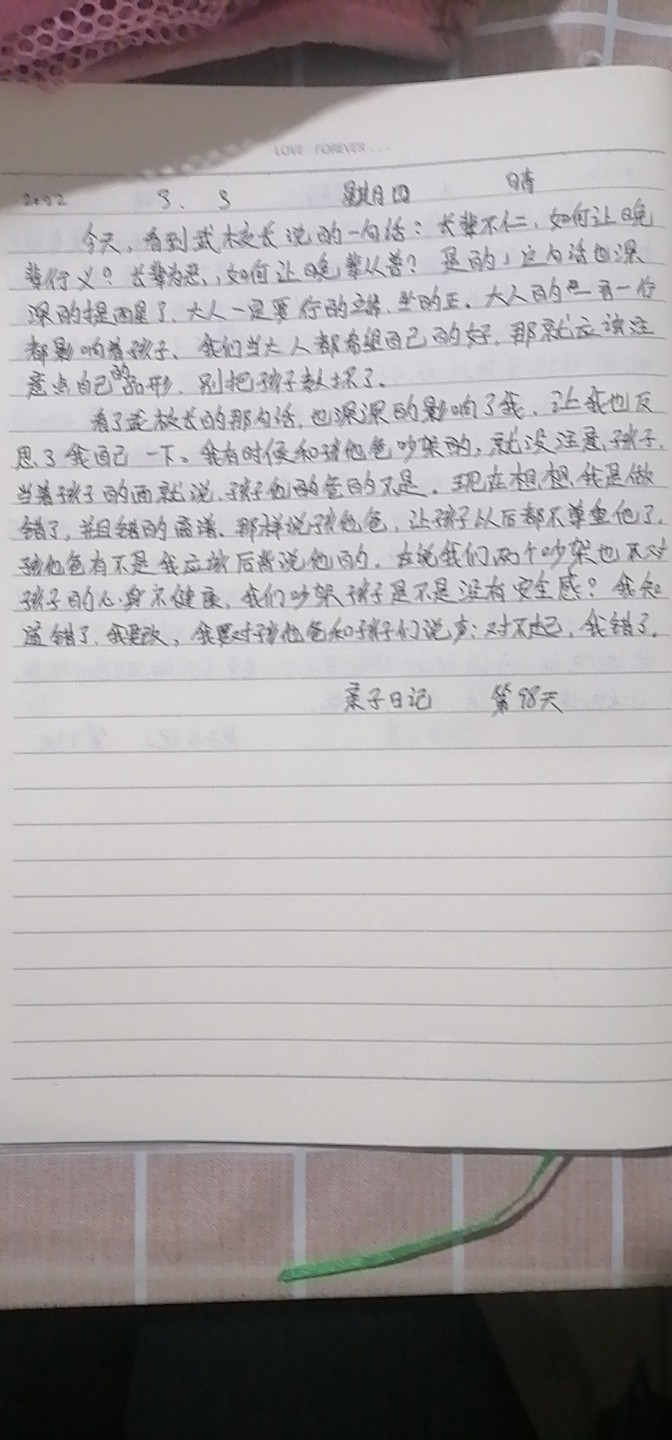 LOVE FOREVER...
2022 3. 3 星期四 晴
今天,看到武校长说的一句话:长辈不仁,如何让晚
辈行义?长辈为恶,如何让晚辈从善?是的,这句话也深
深的提醒了,大人一定要行的端,坐的正。大人的一言一行
都影响着孩子、我们当大人都希望自己的好,那就应该注
意点自己的品形,别把孩子教坏了。
看了武校长的那句话,也深深的影响了我,让我也反
思了我自己一下。我有时候和孩他爸吵架的,就没注意孩子,
当着孩子的面就说,孩子他爸的不是。现在想想,我是做
错了,并且错的离谱、那样说孩他爸,让孩子以后都不尊重他了,
孩他爸有不是我应该后背说他的,在说我们两个吵架也不对
孩子的心身不健康,我们吵架孩子是不是没有安全感?我知
道错了,我要改,我要对孩他爸和孩子们说声:对不起,我错了。
亲子日记 第98天